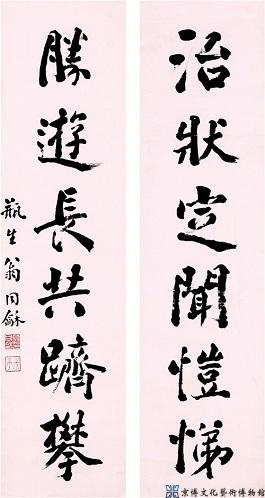 治狀定聞愷悌
勝遊長共躋攀
瓶生翁同龢
京博文化藝術博物館